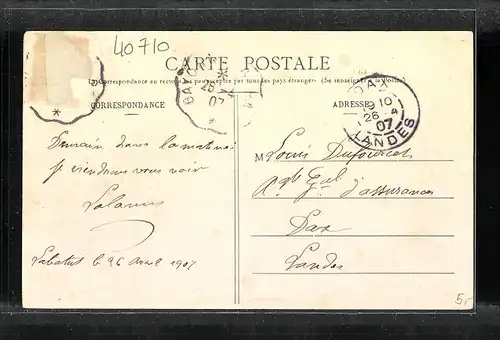 40710
CARTE POSTALE
La Correspondance au recto n'est pas acceptée par tous pays étrangers. (Se renseigner à la Poste)
CORRESPONDANCE
ADRESSE
DAX
10
26 4
07
LANDES
Demain dans la matinée
je viendrai vous voir
Labatut le 26 Avril 1907
M Louis
Agt Gal d'assurances
Dax
Landes
5,-